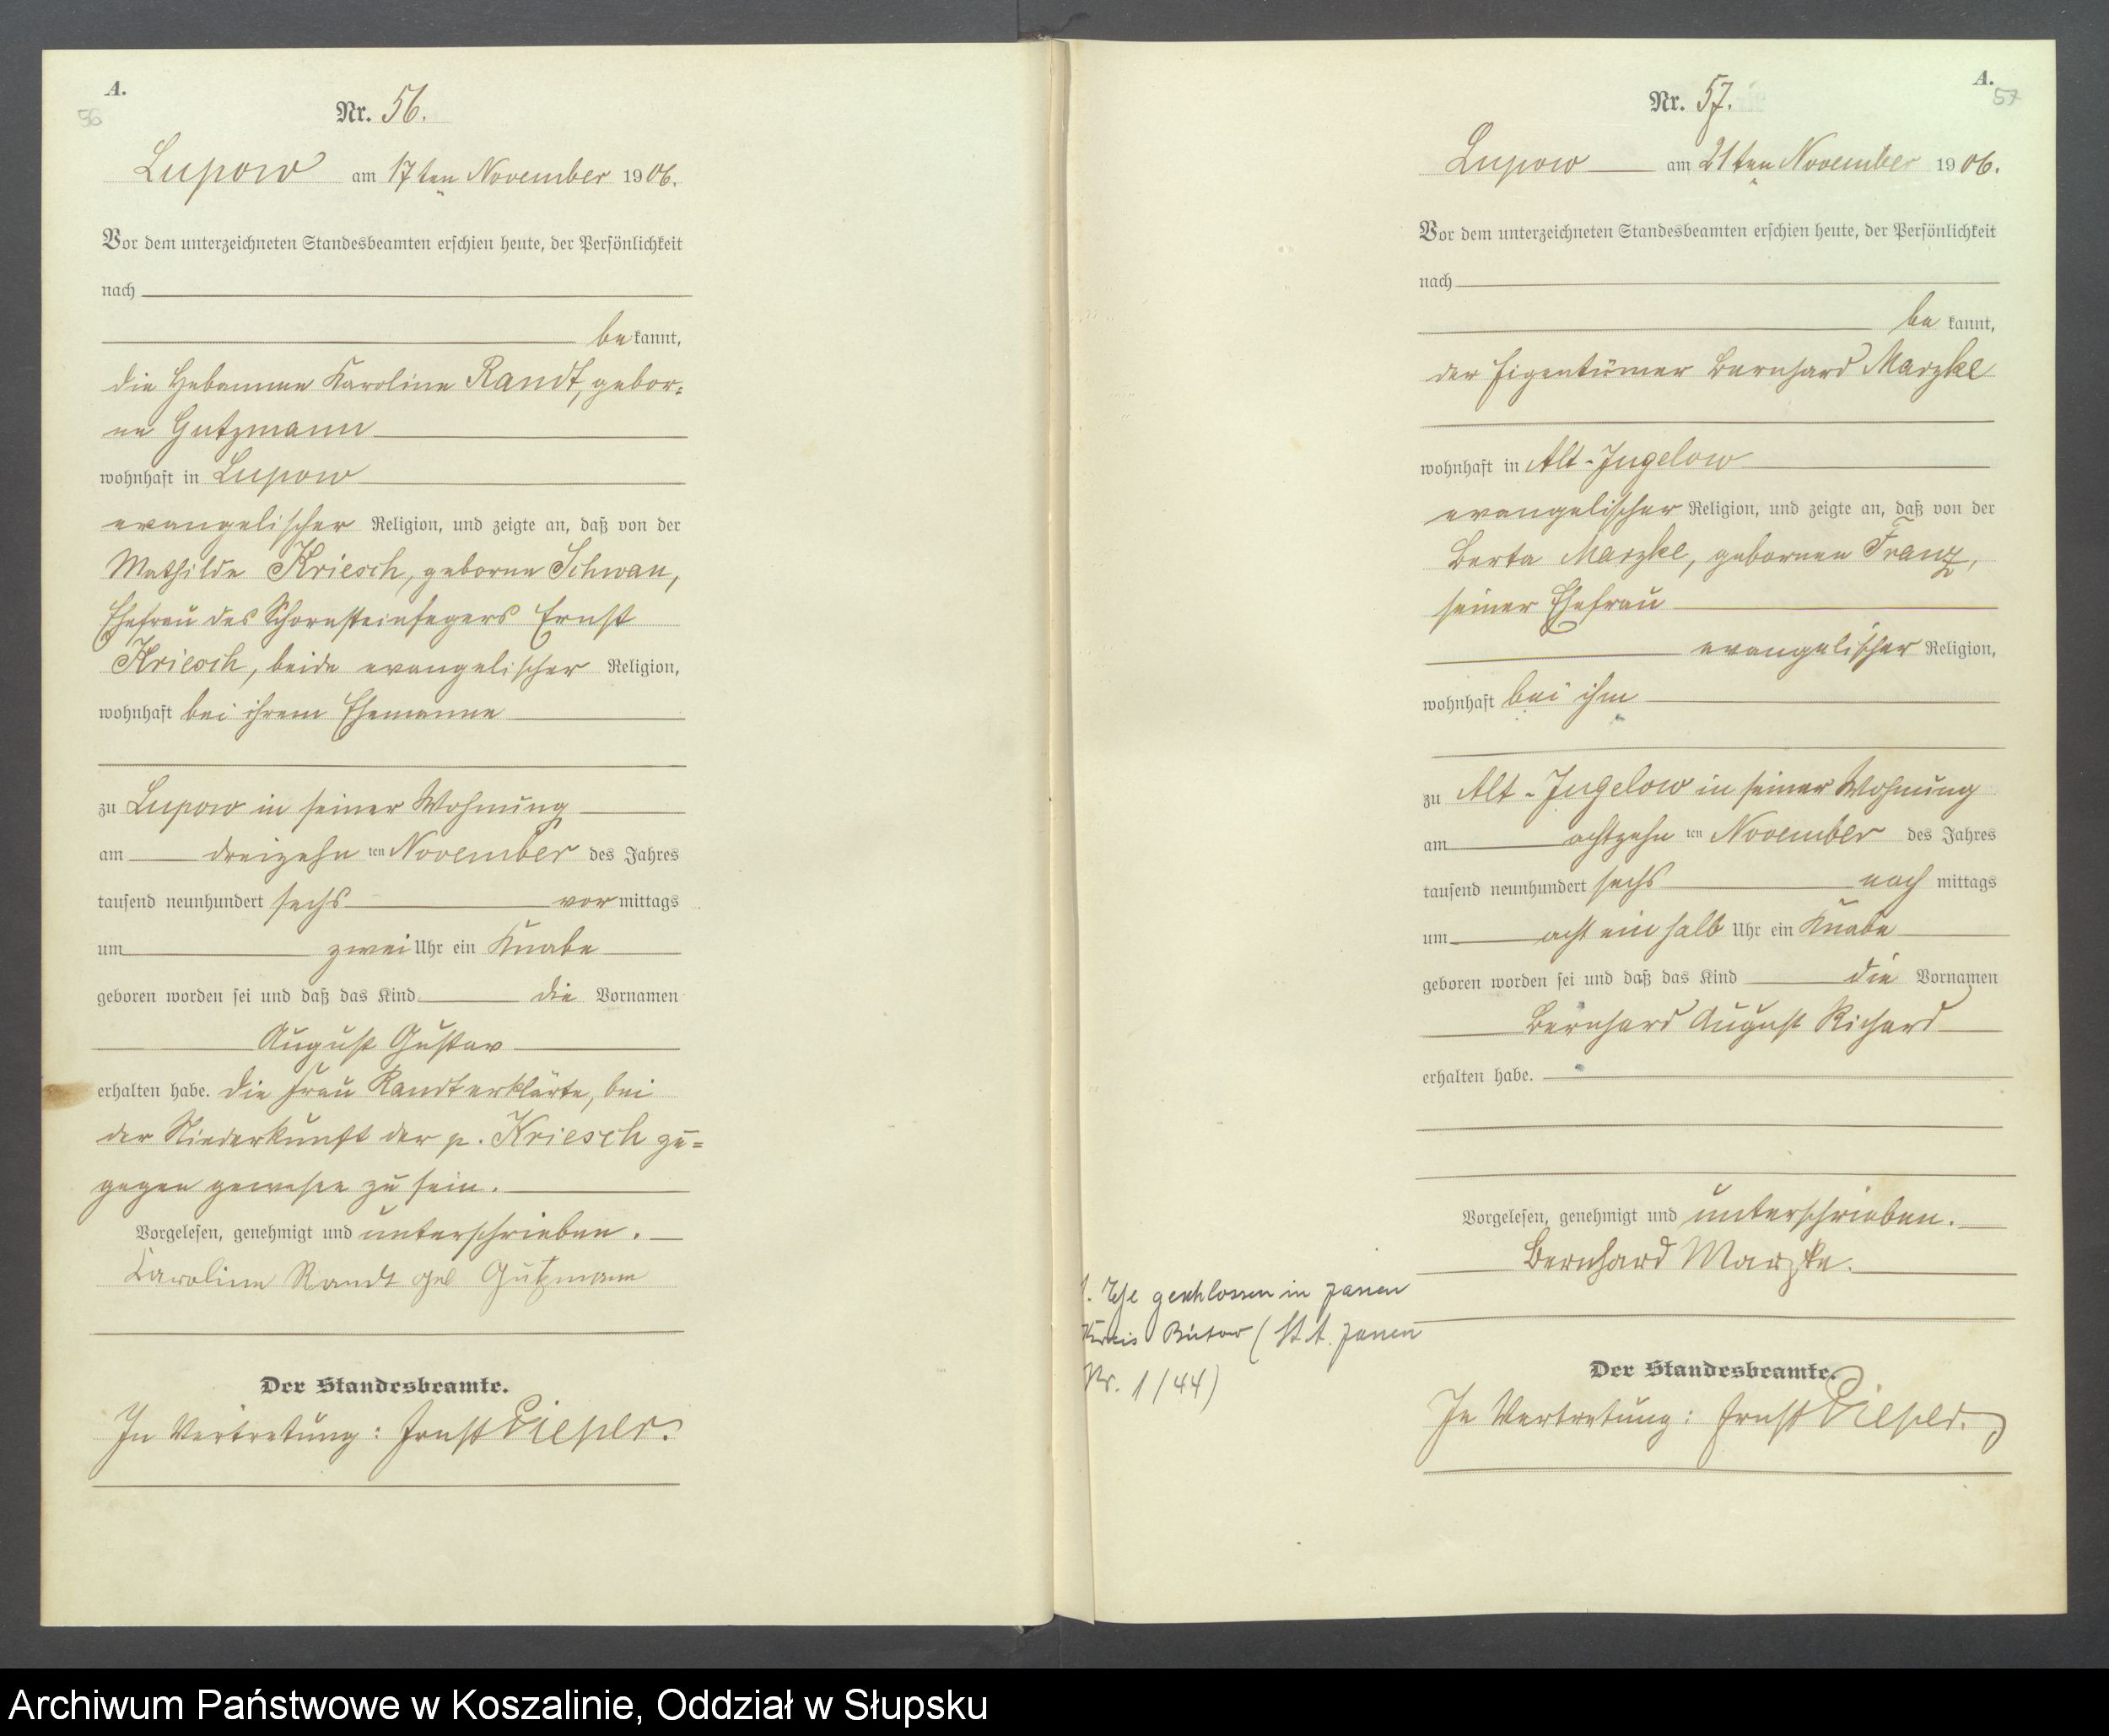 A.
56
Nr. 56.
Lupow am 17ten November 1906.
Vor dem unterzeichneten Standesbeamten erschien heute, der Persönlichkeit
nach
bekannt,
die Hebamme Karoline Randt, gebor=
ne Gutzmann
wohnhaft in Lupow
evangelischer Religion, und zeigte an, daß von der
Mathilde Kriesch, geborne Schwan,
Ehefrau des Schornsteinfegers Ernst
Kriesch, beide evangelischer Religion,
wohnhaft bei ihrem Ehemanne
zu Lupow in seiner Wohnung
am dreizehn ten November des Jahres
tausend neunhundert sechs vormittags
um zwei Uhr ein Knabe
geboren worden sei und daß das Kind die Vornamen
August Gustav
erhalten habe. Die Frau Randt erklärte, bei
der Niederkunft der p. Kriesch zu=
gegen gewesen zu sein.
Vorgelesen, genehmigt und unterschrieben.
Karoline Randt geb Gutzmann
Der Standesbeamte.
In Vertretung: Ernst Pieper.
A.
57
Nr. 57.
Lupow am 21ten November 1906.
Vor dem unterzeichneten Standesbeamten erschien heute, der Persönlichkeit
nach
be kannt,
der Eigentümer Bernhard Marzke
wohnhaft in Alt-Jugelow
evangelischer Religion, und zeigte an, daß von der
Berta Marzke, gebornen Franz,
seiner Ehefrau
evangelischer Religion,
wohnhaft bei ihm
zu Alt-Jugelow in seiner Wohnung
am achtzehn ten November des Jahres
tausend neunhundert sechs nach mittags
um acht ein halb Uhr ein Knabe
geboren worden sei und daß das Kind die Vornamen
Bernhard August Richard
erhalten habe.
Vorgelesen, genehmigt und unterschrieben.
Bernhard Marzke.
1. Ehe geschlossen in Zanen
Kreis Bütow (St. A. Zanen
Nr. 1/44)
Der Standesbeamte.
In Vertretung: Ernst Pieper.
Archiwum Państwowe w Koszalinie, Oddział w Słupsku